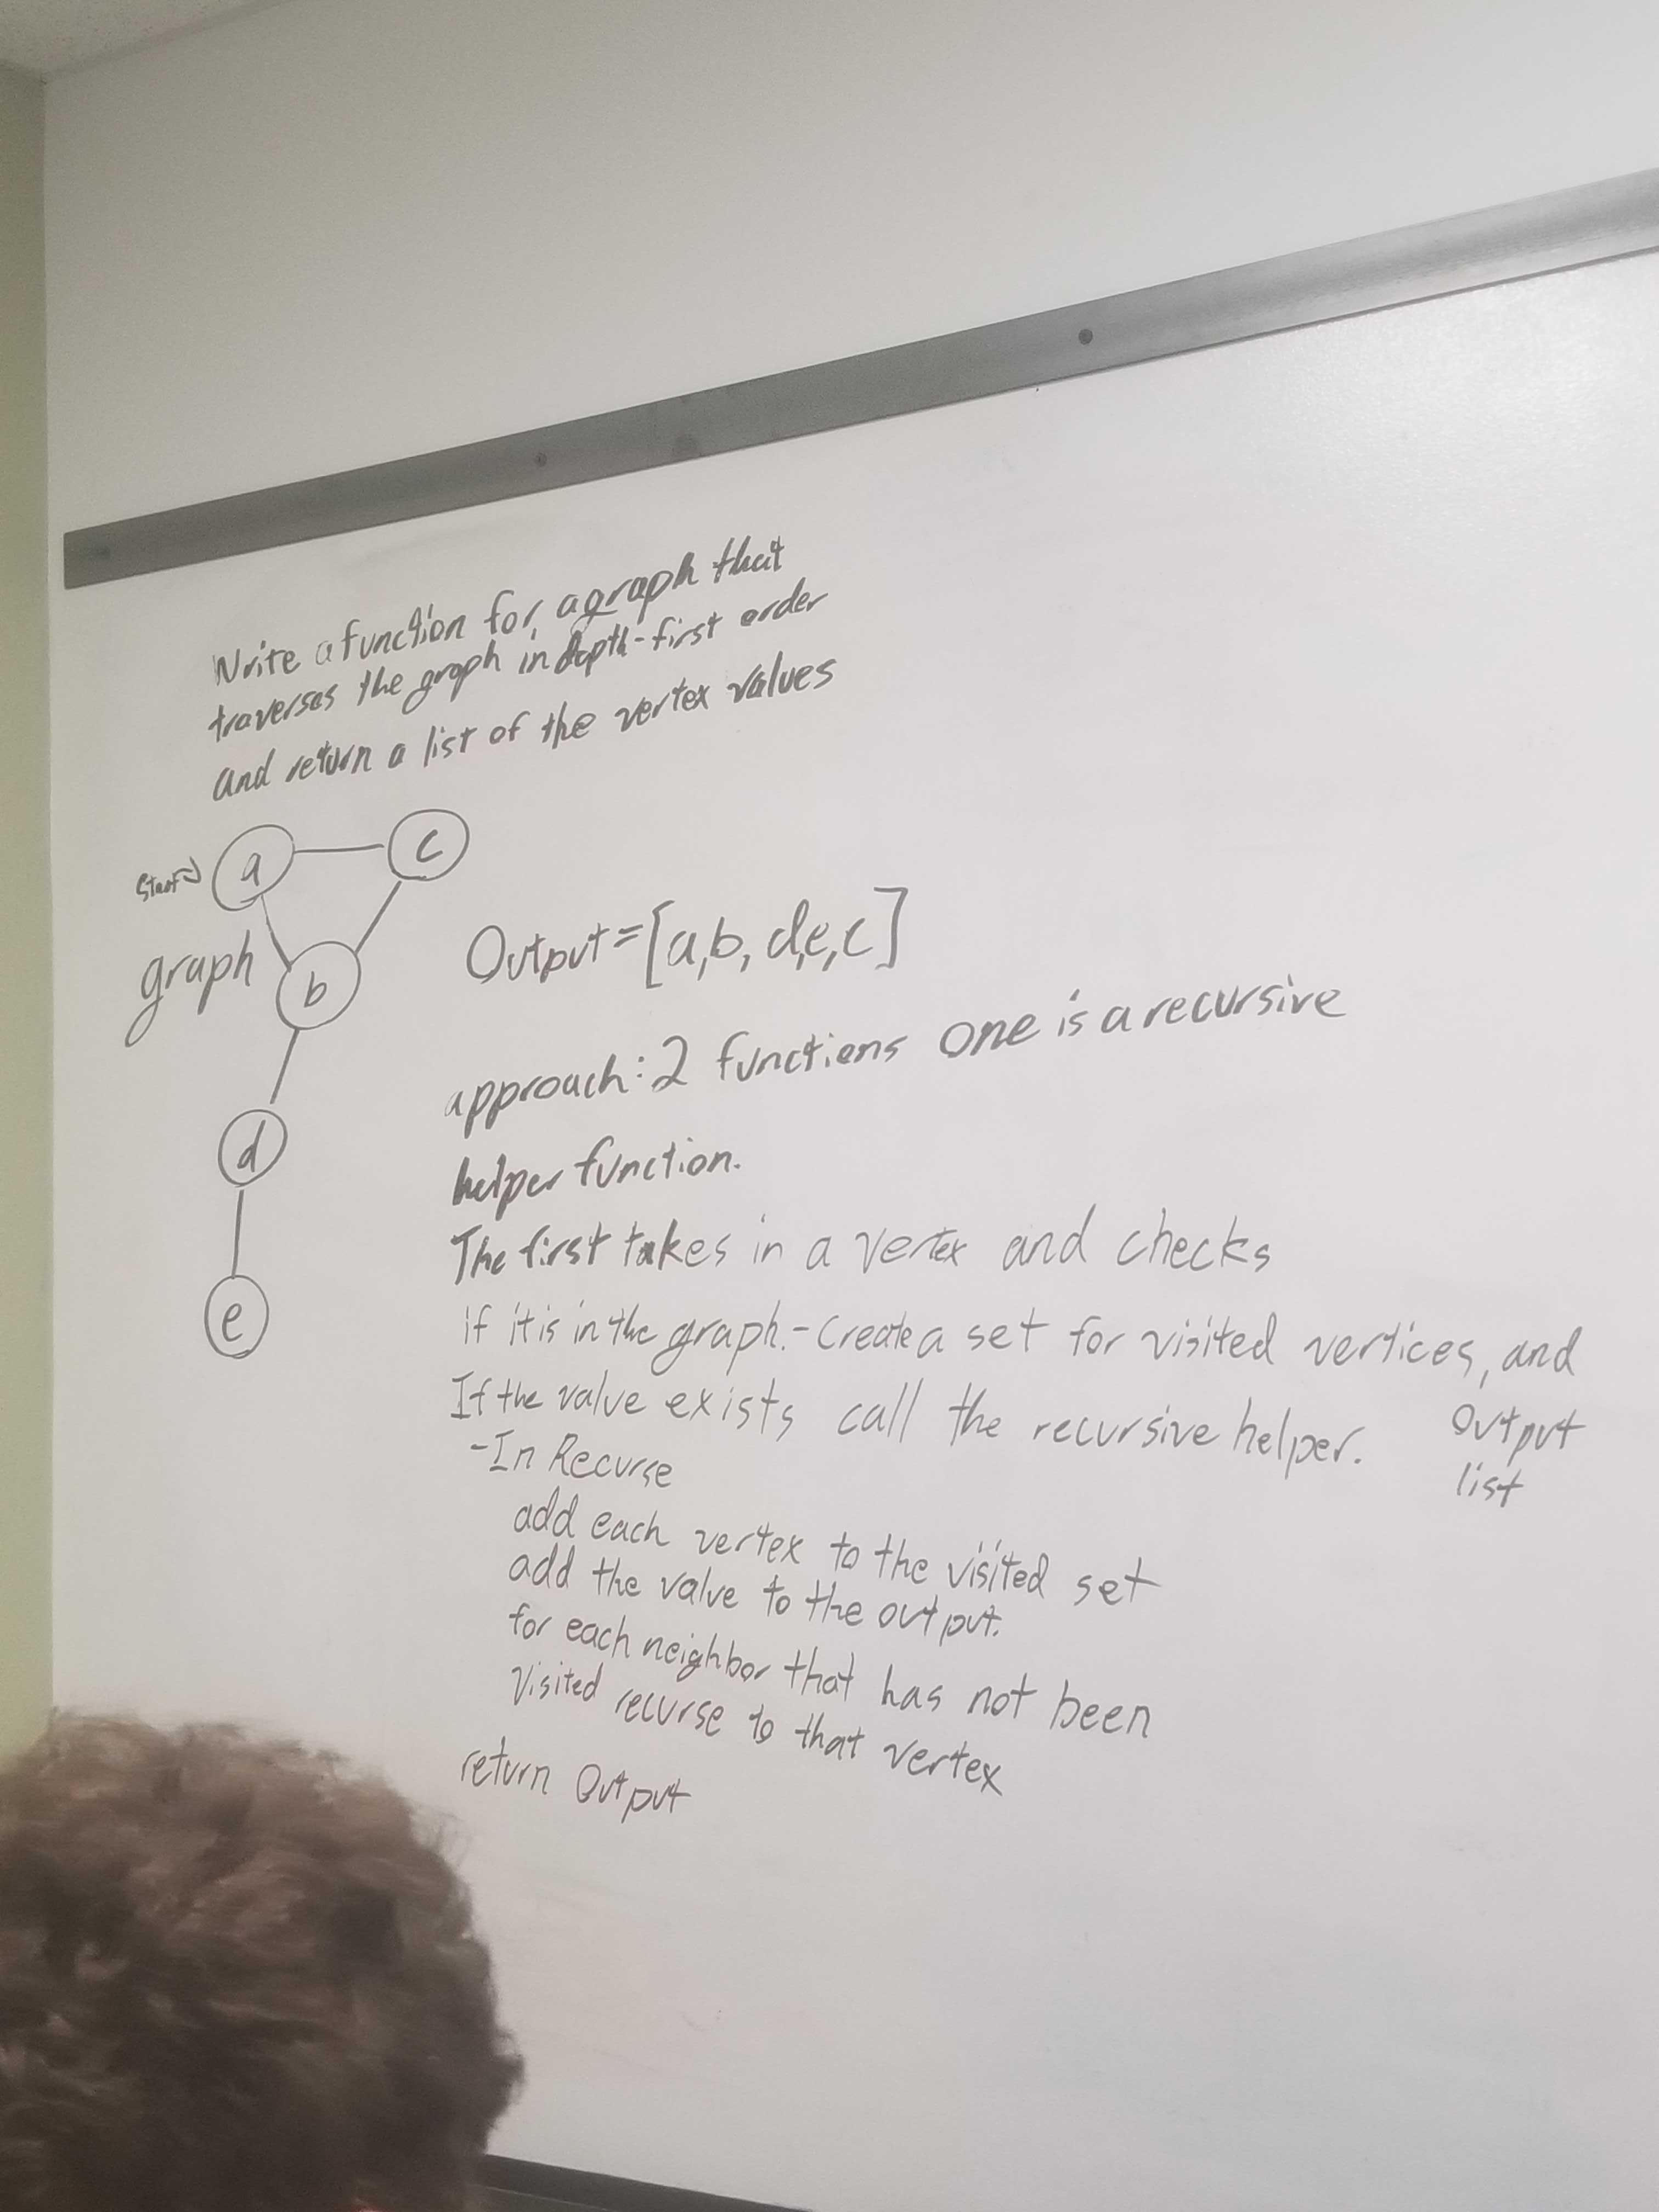 Write a function for a graph that
traverses the graph in depth-first order
and return a list of the vertex values
start→ a c
graph b
Output=[a,b, d,e,c]
d
e
approach: 2 functions one is a recursive
helper function.
The first takes in a vertex and checks
if it is in the graph. - Create a set for visited vertices, and
output
list
If the value exists call the recursive helper.
-In Recurse
add each vertex to the visited set
add the value to the output.
for each neighbor that has not been
Visited recurse to that vertex
return Output